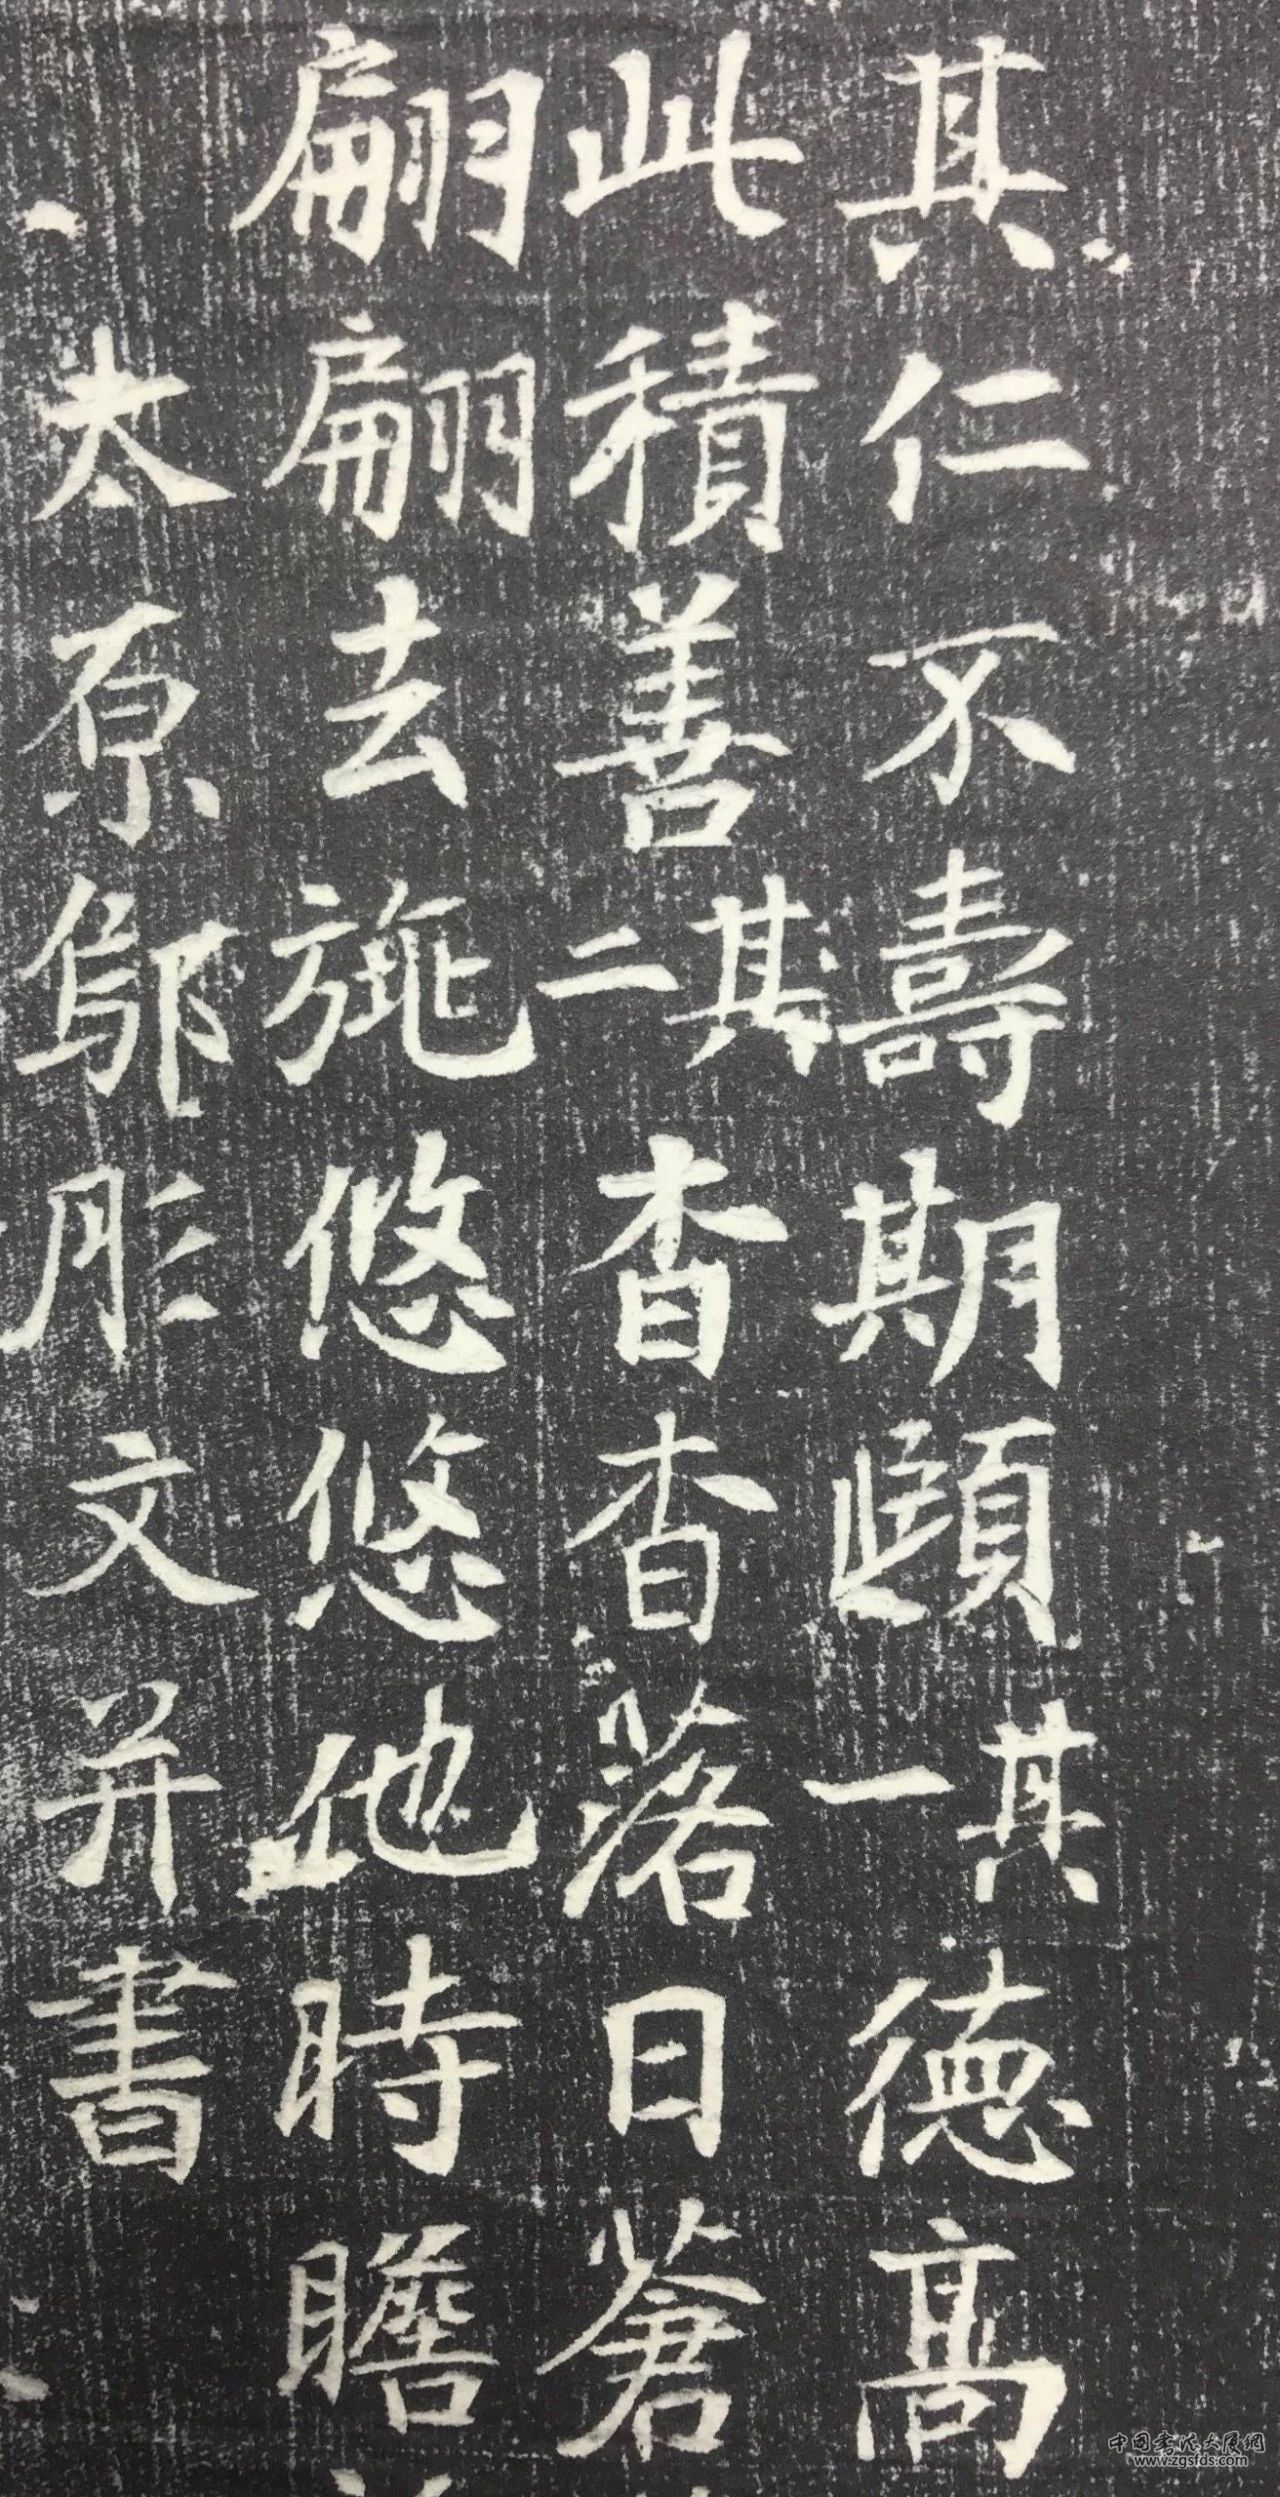 其仁不壽期頤其一德高
此積善其二杳杳落日蒼
翩翩去旐悠悠他時瞻
太原鄔彤文并書
中國書法大展網
www.zgsfds.com